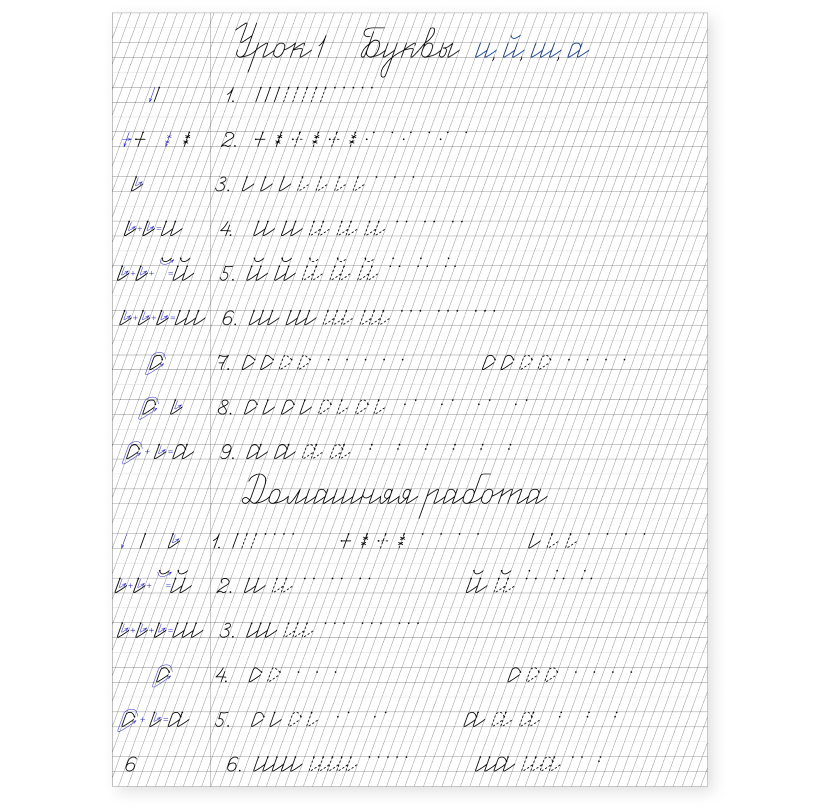 Урок 1 Буквы и, й, ш, а
1.
2.
3.
4. и и и и и
5. й й й й й
6. ш ш ш ш
7.
8.
9. а а а а
Домашняя работа
1.
2. и и й й
3. ш ш
4.
5. а а а
6 6. ши ши иа иа